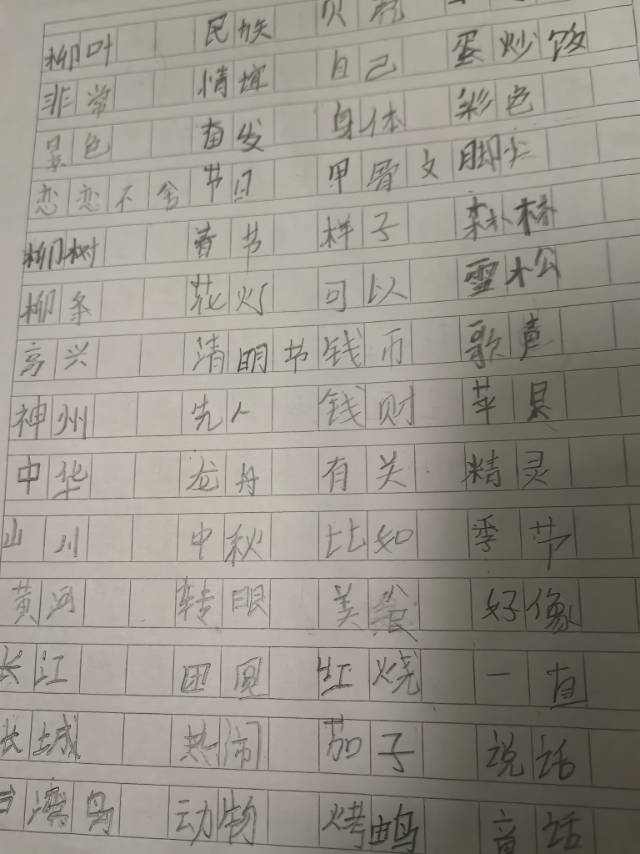 柳叶 民族 贝壳
非常 情谊 自己 蛋炒饭
景色 奋发 身体 彩色
恋恋不舍 节日 甲骨文 脚尖
柳树 春节 样子
柳条 花灯 可以 雪松
高兴 清明节 钱币 歌声
神州 先人 钱财 苹果
中华 龙舟 有关 精灵
山川 中秋 比如 季节
黄河 转眼 美食 好像
长江 团圆 红烧 一直
长城 热闹 茄子 说话
台湾岛 动物 烤鸭 童话